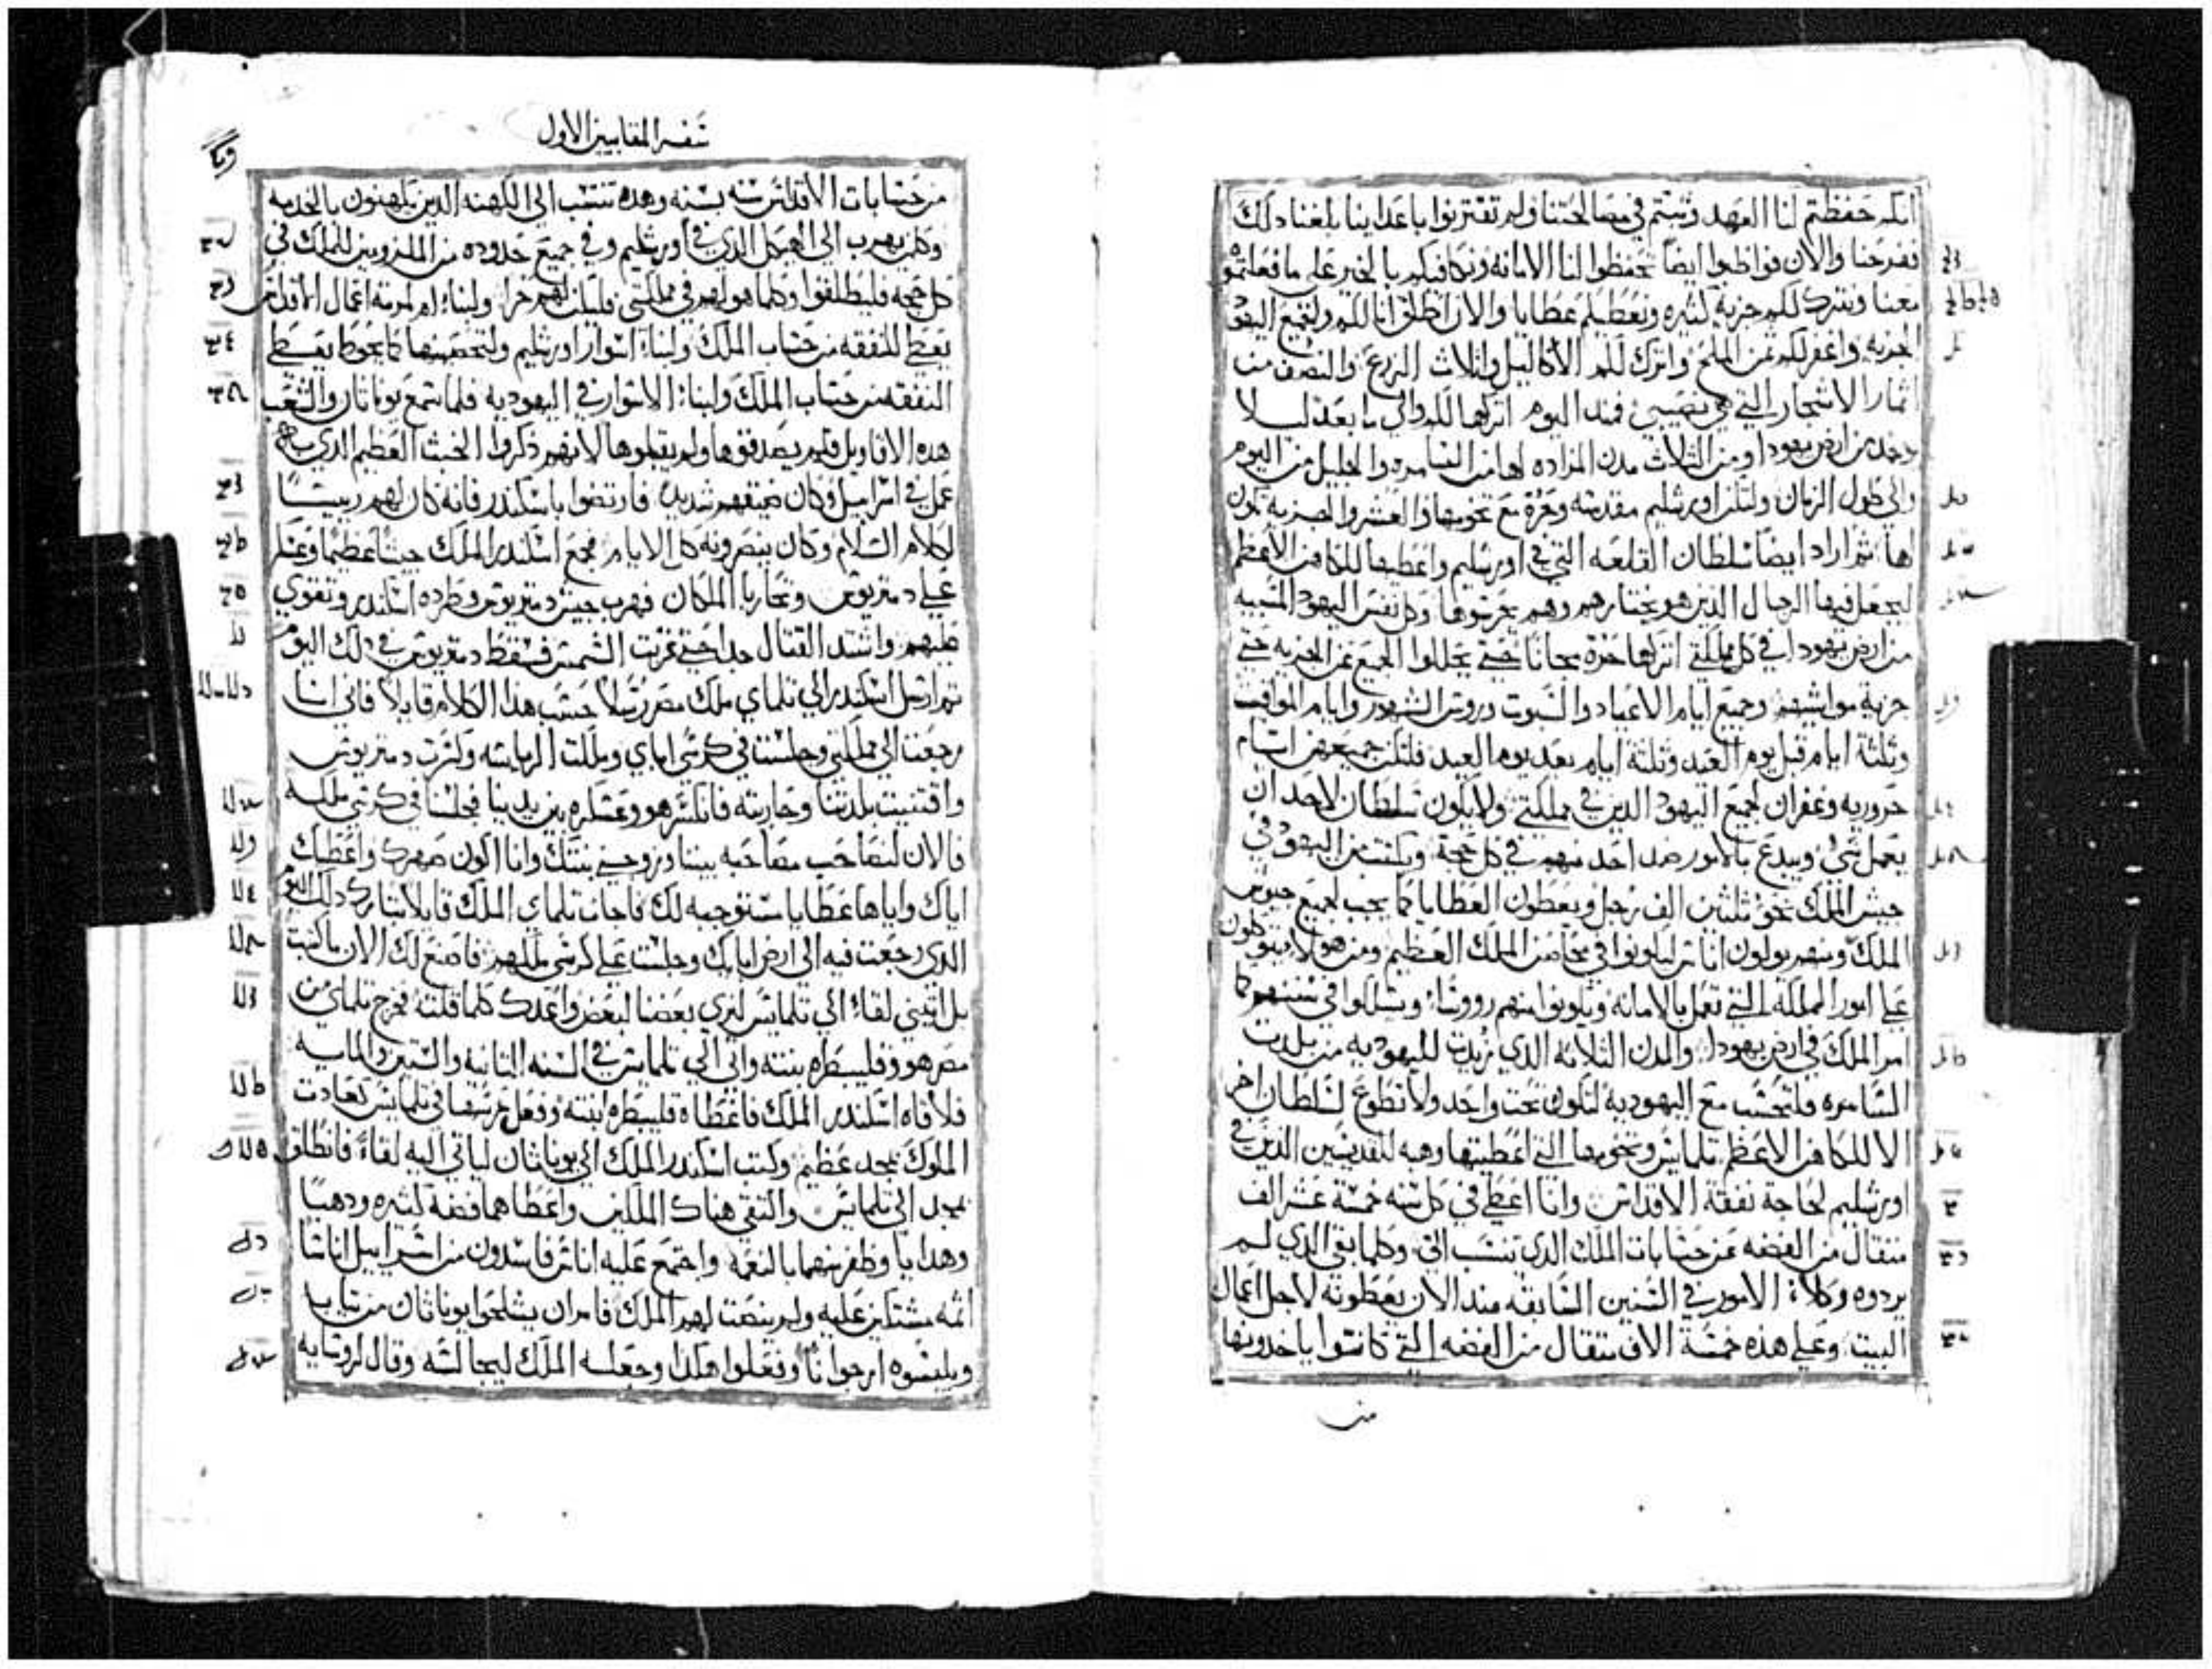 انكم حفظتم لنا العهد وثبتم في مصالحتنا ولم تقتربوا باعداينا بلغنا دلك
ففرحنا والان فواظبوا ايضاً تحفظوا لنا الامانه ونكافيكم بالخير علي ما فعلتموه
معنا ونترك لكم جزية كثيره ونعطيكم عطايا والان اطلق انا لكم ولجميع اليهود
الجزيه واغفر لكم ثمن الملح واترك لكم الاكاليل واثلاث الزرع والنصف من
اثمار الاشجار التي هي نصيبي فمند اليوم اتركها لكم والي ما بعد ليلا
يوخد من ارض يهودا ومن الثلاث مدن المزاده لها من السامره والجليل من اليوم
والي طول الزمان ولتكن اورشليم مقدسه وحره مع تخومها والعشر والجزيه تكون
لها ثم اراد ايضاً سلطان القلعه التي في اورشليم واعطيها للكاهن الاعظم
ليجعل فيها الرجال الدين هو يختارهم وهم يحرسوها وكل نفس اليهود المسبيه
من ارض يهودا في كل مملكتي اتركها حره مجاناً حتي يحللوا الجميع من الجزيه حتي
جزية مواشيهم وجميع ايام الاعياد والسبوت وروس الشهور وايام المواقيت
وثلثة ايام قبل يوم العيد وثلثة ايام بعد يوم العيد فلتكن جميعهن ايام
حروريه وغفران لجميع اليهود الدين في مملكتي ولا يكون سلطان لاحد ان
يعمل شي ويبدع بالامور ضد احد منهم في كل حجة ويكتب من اليهود في
جيش الملك نحو ثلثين الف رجل ويعطون العطايا كما يجب لجميع جيوش
الملك ومنهم يولون اناس ليكونوا في محاصن الملك العظيم ومن هولا يتوكلون
علي امور المملكة التي تعمل بالامانه ويكونوا منهم رووسا ويسلكوا في سننهم كما
امر الملك في ارض يهودا والمدن الثلاثه الدي زيدت لليهوديه من بلدت
السامره فلتحسب مع اليهودية لتكون تحت واحد ولا تطوع لسلطان اخر
الا للكاهن الاعظم تلمايس وتخومها التي اعطيتها وهبه للقديسين الدين في
اورشليم لحاجة نفقة الاقداس وانا اعطي في كل سنه خمسة عشر الف
مثقال من الفضه من حسابات الملك الدي تنتسب الي وكلما بقي الدي لم
يردوه وكلاء الامور في السنين السابقه مند الان يعطونه لاجل اعمال
البيت وعلي هذه خمسة الاف مثقال من الفضه التي كانوا ياخدونها
من
سفر المقابيين الاول
من حسابات الاقداس سنه بسنه وهده تنتسب الي الكهنه الدين يكهنون بالخدمه
وكل من يهرب الي الهيكل الدي في اورشليم وفي جميع حدوده من الملزومين للملك في
كل حجه فليطلقوا وكلما هو لهم في مملكتي فليكن لهم حرا ولبناء او لمرمة اعمال الاقداس
يعطي للنفقه من حساب الملك ولبناء اسوار اورشليم ولتحصينها كما يحوط يعطي
النفقه من حساب الملك ولبناء الاسوار في اليهوديه فلما سمع يوناثان والشعب
هده الاقاويل فلم يصدقوها ولم يقبلوها لانهم ذكروا الخبث العظيم الدي
عمل في اسراييل وكان ضيقهم شديداً فارتضوا باسكندر فانه كان لهم رييساً
لكلام السلام وكان ينصرونه كل الايام فجمع اسكندر الملك جيشاً عظيماً وعسكر
علي دمتريوس وتحاربا الملكان فهرب جيش دمتريوس وطرده اسكندر وتقوي
عليهم واشتد القتال جدا حتي غربت الشمس فسقط دمتريوس في دلك اليوم
ثم ارسل اسكندر الي تلماي ملك مصر رسلاً حسب هذا الكلام قايلاً فاني انا
رجعت الي مملكتي وجلست في كرسي اباي وملكت الرياسه وكسرت دمتريوس
واقتنيت بلدتنا وحاربته فانكسر هو وعسكره بين يدينا فجلسنا في كرسي ملكه
فالان لنصاحب مصاحبه بيننا وزوجني بنتك وانا اكون صهرك واعطيك
اياك واياها عطايا مستوجبه لك فاجاب تلماي الملك قايلاً مبارك دلك اليوم
الدي رجعت فيه الي ارض ابايك وجلست علي كرسي ملكهم فاصنع لك الان ما كتبت
بل اتيني لقاء الي تلمايس لنري بعضنا لبعض واعدك كلما قلته فخرج تلماي من
مصر هو وقليبطره بنته واتي الي تلمايس في السنه الثانيه والستين والمايه
فلاقاه اسكندر الملك فاعطاه قليبطره ابنته وفعل عرسها في تلمايس كعادت
الملوك بمجد عظيم وكتب اسكندر الملك الي يوناثان لياتي اليه لقاء فانطلق
بمجد الي تلمايس والتقي هناك الملكين واعطاهما فضة كثيره ودهباً
وهدايا وظفر منهما بالنعمه واجتمع عليه اناس فاسدون من اسراييل اناساً
اثمه مشتكين عليه ولم ينصت لهم الملك فامر ان يشلحوا يوناثان من تيابه
ويلبسوه ارجواناً وفعلوا هكذا وجعلسه الملك ليجالسه وقال لروسايه